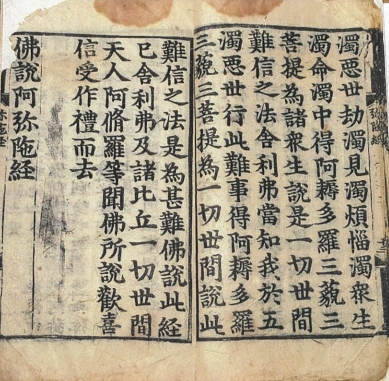 濁悪世劫濁見濁煩惱濁衆生
濁命濁中得阿耨多羅三藐三
菩提為諸衆生說是一切世間
難信之法舍利弗當知我於五
濁悪世行此難事得阿耨多羅
三藐三菩提為一切世間說此
難信之法是為甚難佛說此経
已舍利弗及諸比丘一切世間
天人阿脩羅等聞佛所說歡喜
信受作禮而去
佛說阿弥陁経
弥陁経